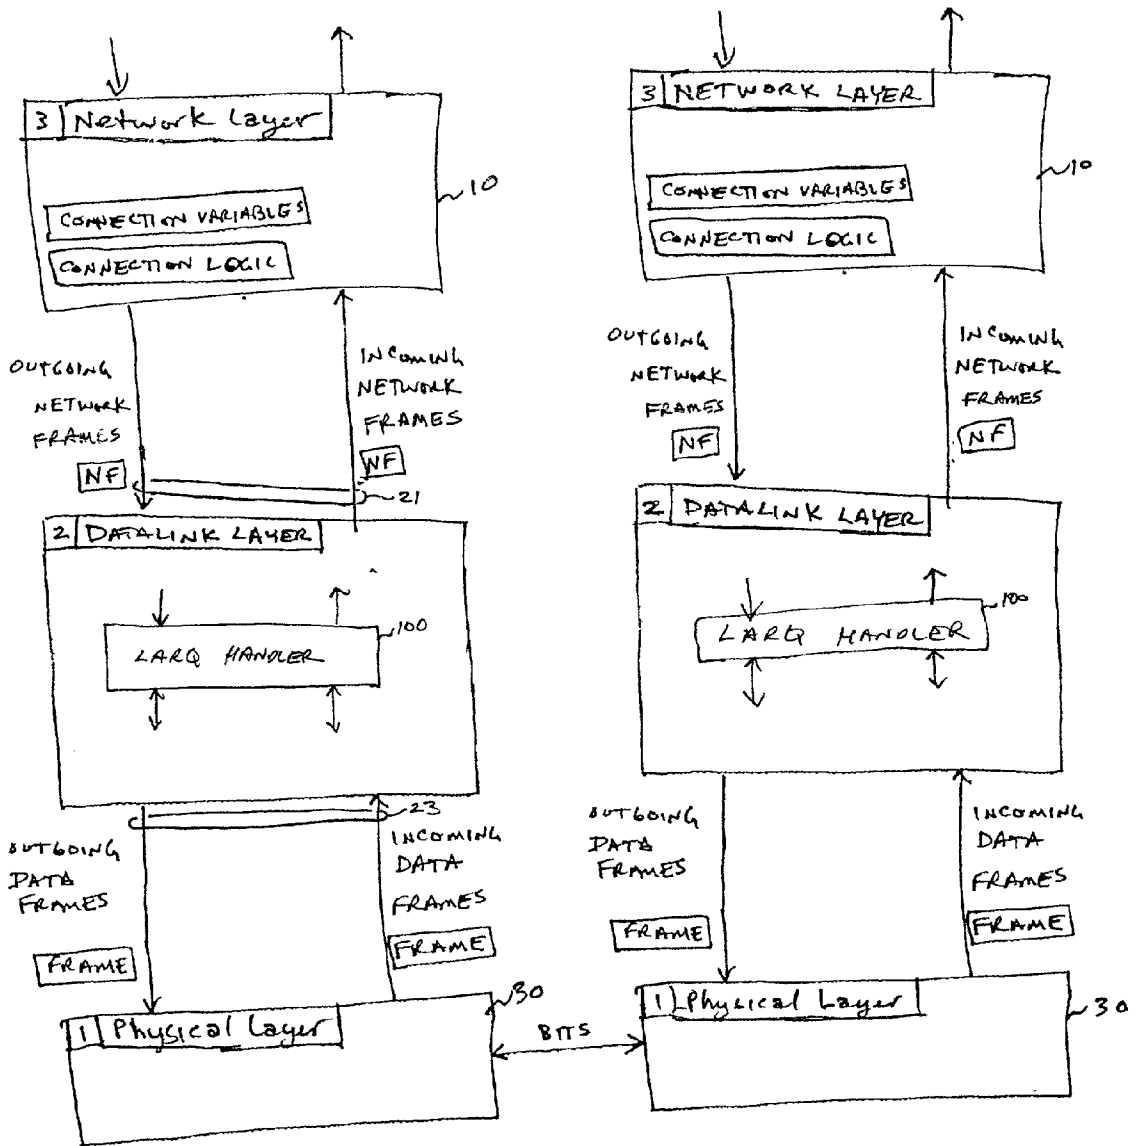 3 Network Layer
CONNECTION VARIABLES
CONNECTION LOGIC
10
OUTGOING
NETWORK
FRAMES
NF
INCOMING
NETWORK
FRAMES
NF
21
2 DATALINK LAYER
LARQ HANDLER
100
23
OUTGOING
DATA
FRAMES
FRAME
INCOMING
DATA
FRAMES
FRAME
1 Physical Layer
30
BITS
3 NETWORK LAYER
CONNECTION VARIABLES
CONNECTION LOGIC
10
OUTGOING
NETWORK
FRAMES
NF
INCOMING
NETWORK
FRAMES
NF
2 DATALINK LAYER
LARQ HANDLER
100
OUTGOING
DATA
FRAMES
FRAME
INCOMING
DATA
FRAMES
FRAME
1 Physical Layer
30